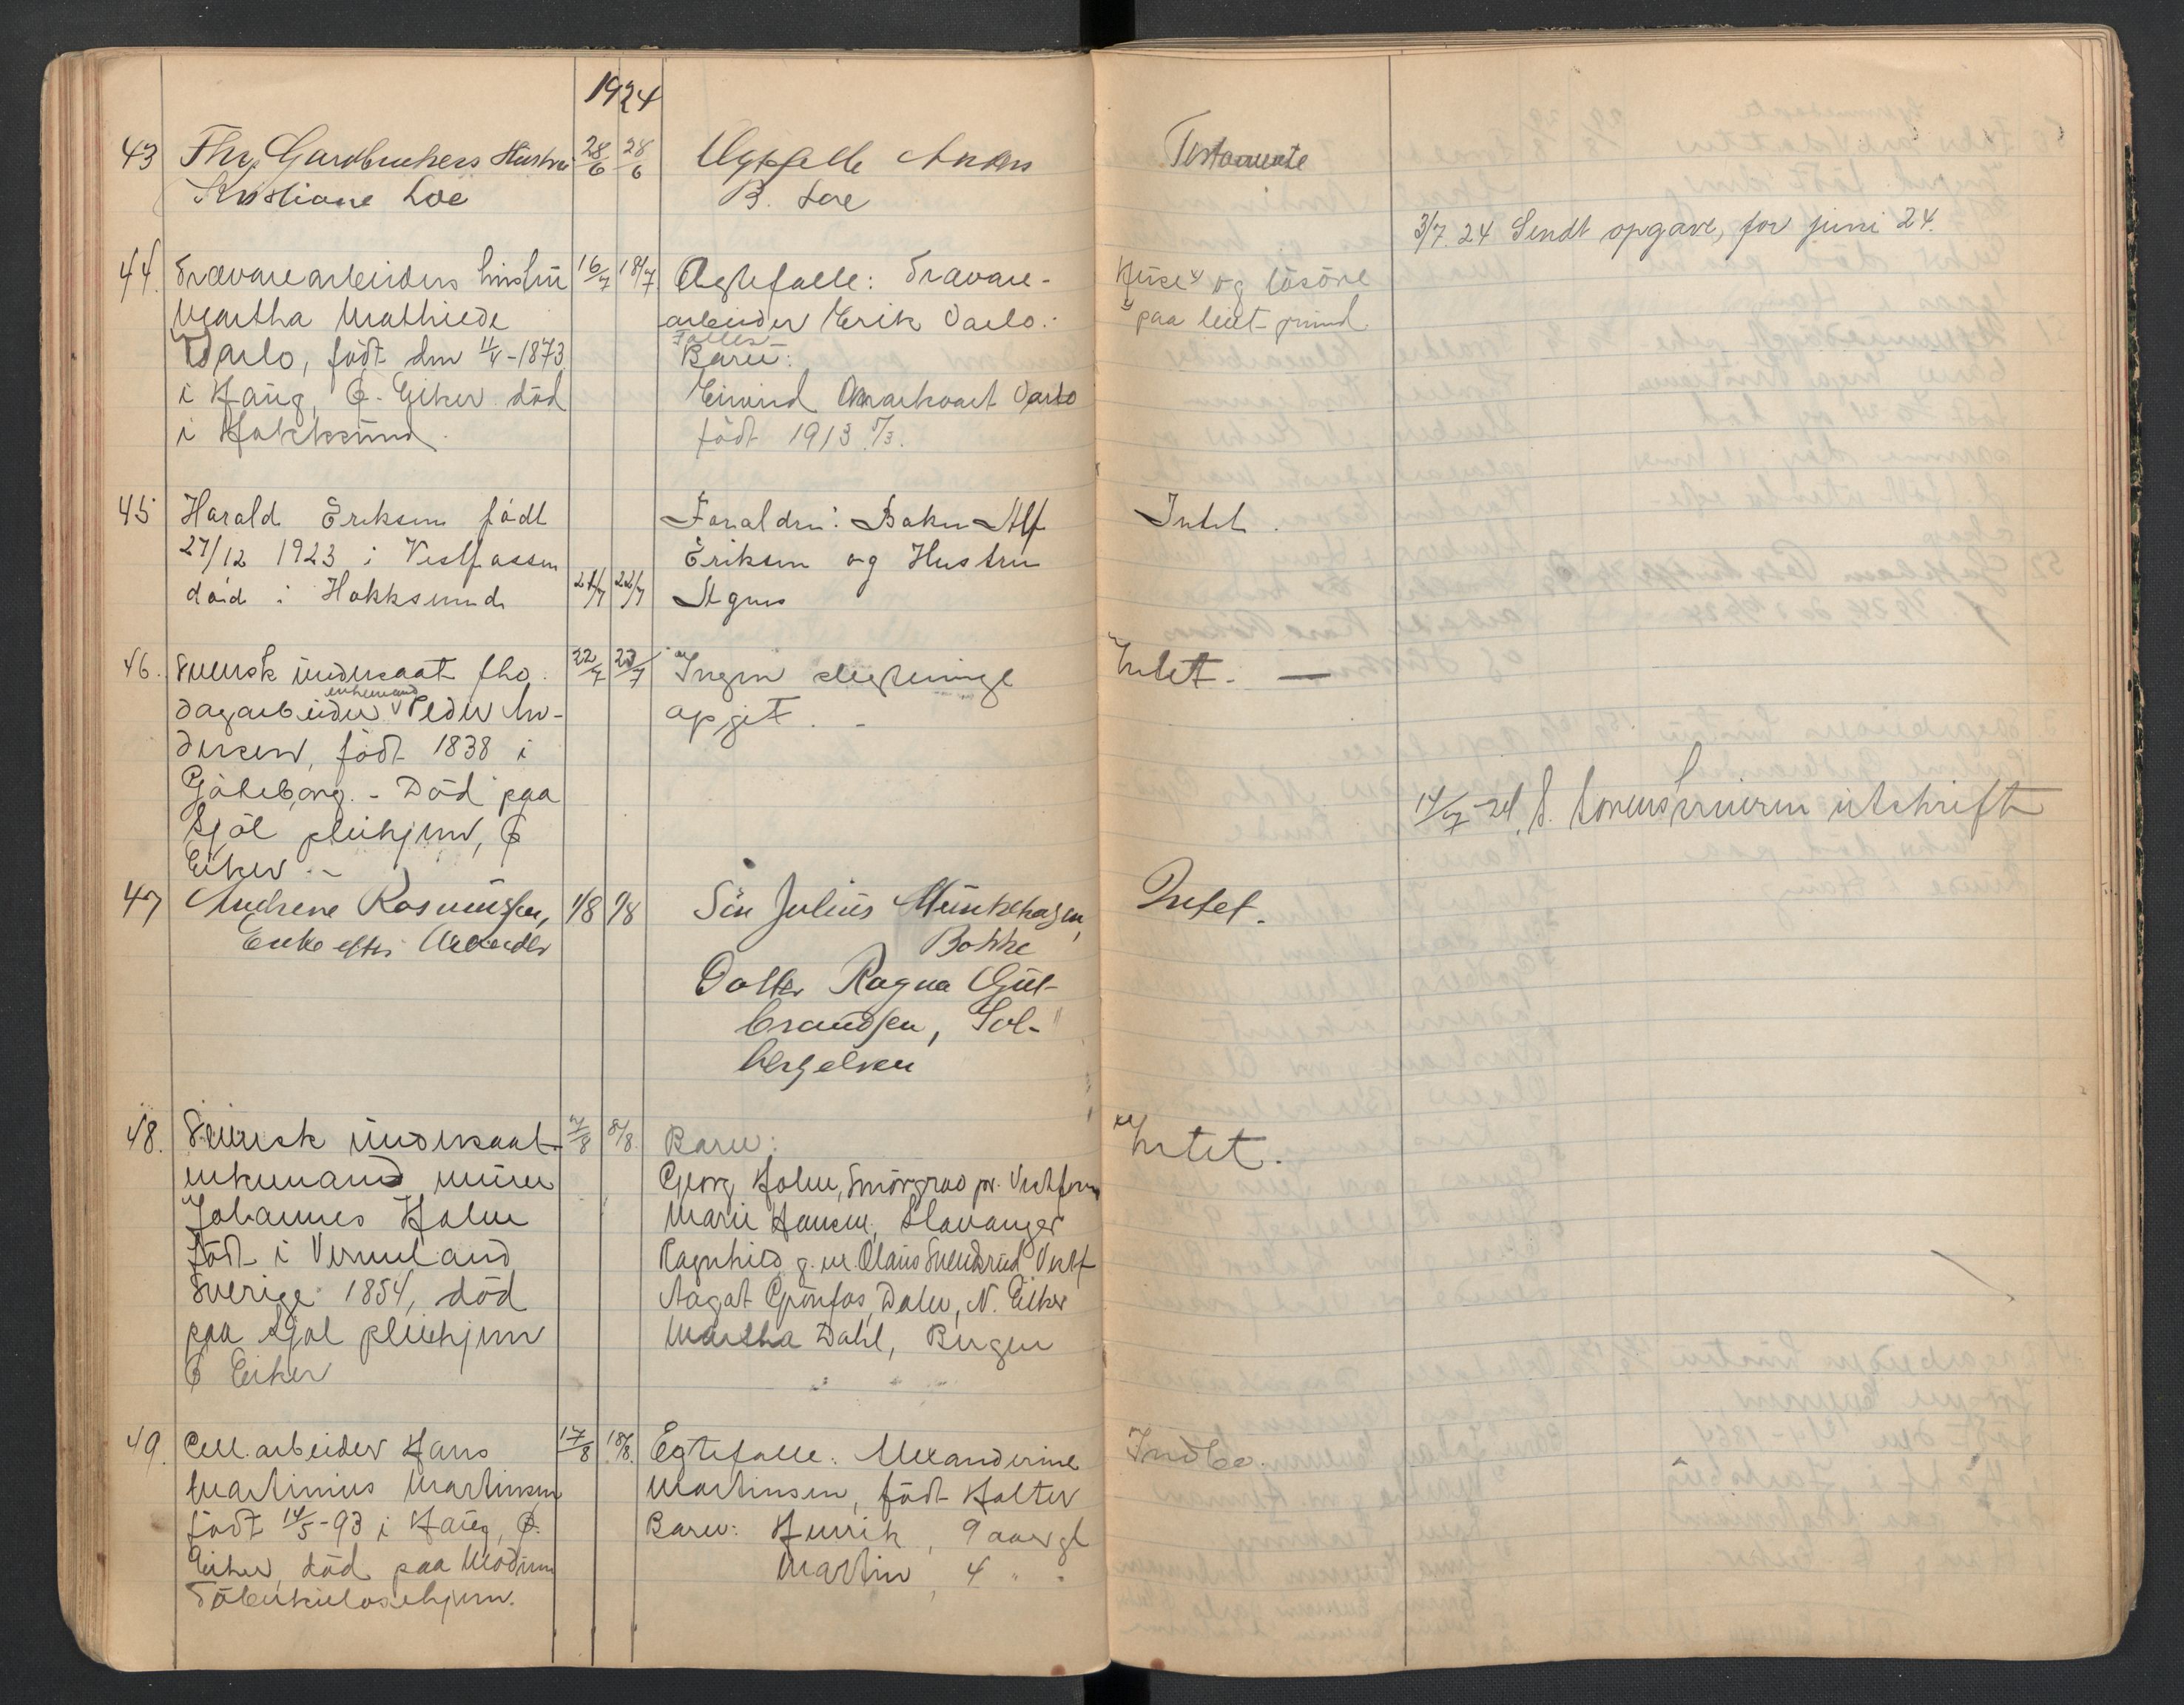 1924
43 Gardbrukers Hustru 28/6 28/6 Anders Testamente
Kristiane Loe B. Loe
3/7. 24 Sendt opgave, for juni 24.
44. Trævarearbeiders hustru 16/7 18/7 Ægtefælle: Trævare- Huse x og løsøre
Martha Mathilde arbeider Erik Varlo. x paa leiet grund.
Varlo, født den 11/5-1873 Fælles Barn:
i Haug, Ø. Eiker død Eivind Markvart Varlo
i Hokksund. født 1913 7/3.
45 Harald Eriksen født Forældre: Baker Alf Intet.
27/12 1923 i Vestfossen Eriksen og Hustru
død i Hokksund 21/7 22/7 Agnes
46. Svensk undersaat fho. 22/7 23/7 Ingen slegtninge Intet. —
dagarbeider enkemand Peder An- opgit. -
dersen, født 1838 i
Gøteborg. - Død paa
Sjøl pleiehjem, Ø 14/7-24. S. Lorensskriveren utskrift
Eiker. -
47 Andrine Rasmussen, 1/8 1/8 Søn Julius Munkehagen, Intet.
Enke efter Arbeider Bakke
Datter Ragna Gul-
brandsen, Sol-
bergelven
48. Svensk undersaat 7/8 8/8. Barn: Intet.
enkemand murer Georg Holm, Smørgrav pr. Vestfossen
Johannes Holm Marie Hansen, Stavanger
født i Vermland Ragnhild g. m. Olaus Svendsrud Vestf
Sverige 1854, død Aagat Grønfos, Dalen, N. Eiker
paa Sjøl pleiehjem Martha Dahl, Bergen
Ø Eiker
49. Cell. arbeider Hans 17/8 18/8. Egtefælle: Alexanderine Indbo.
Martinius Martinsen Martinsen, født Holter
født 14/5-93 i Haug, Ø. Barn: Henrik, 9 aar gl
Eiker, død paa Modum Martin, 4 " "
Tuberkulosehjem.